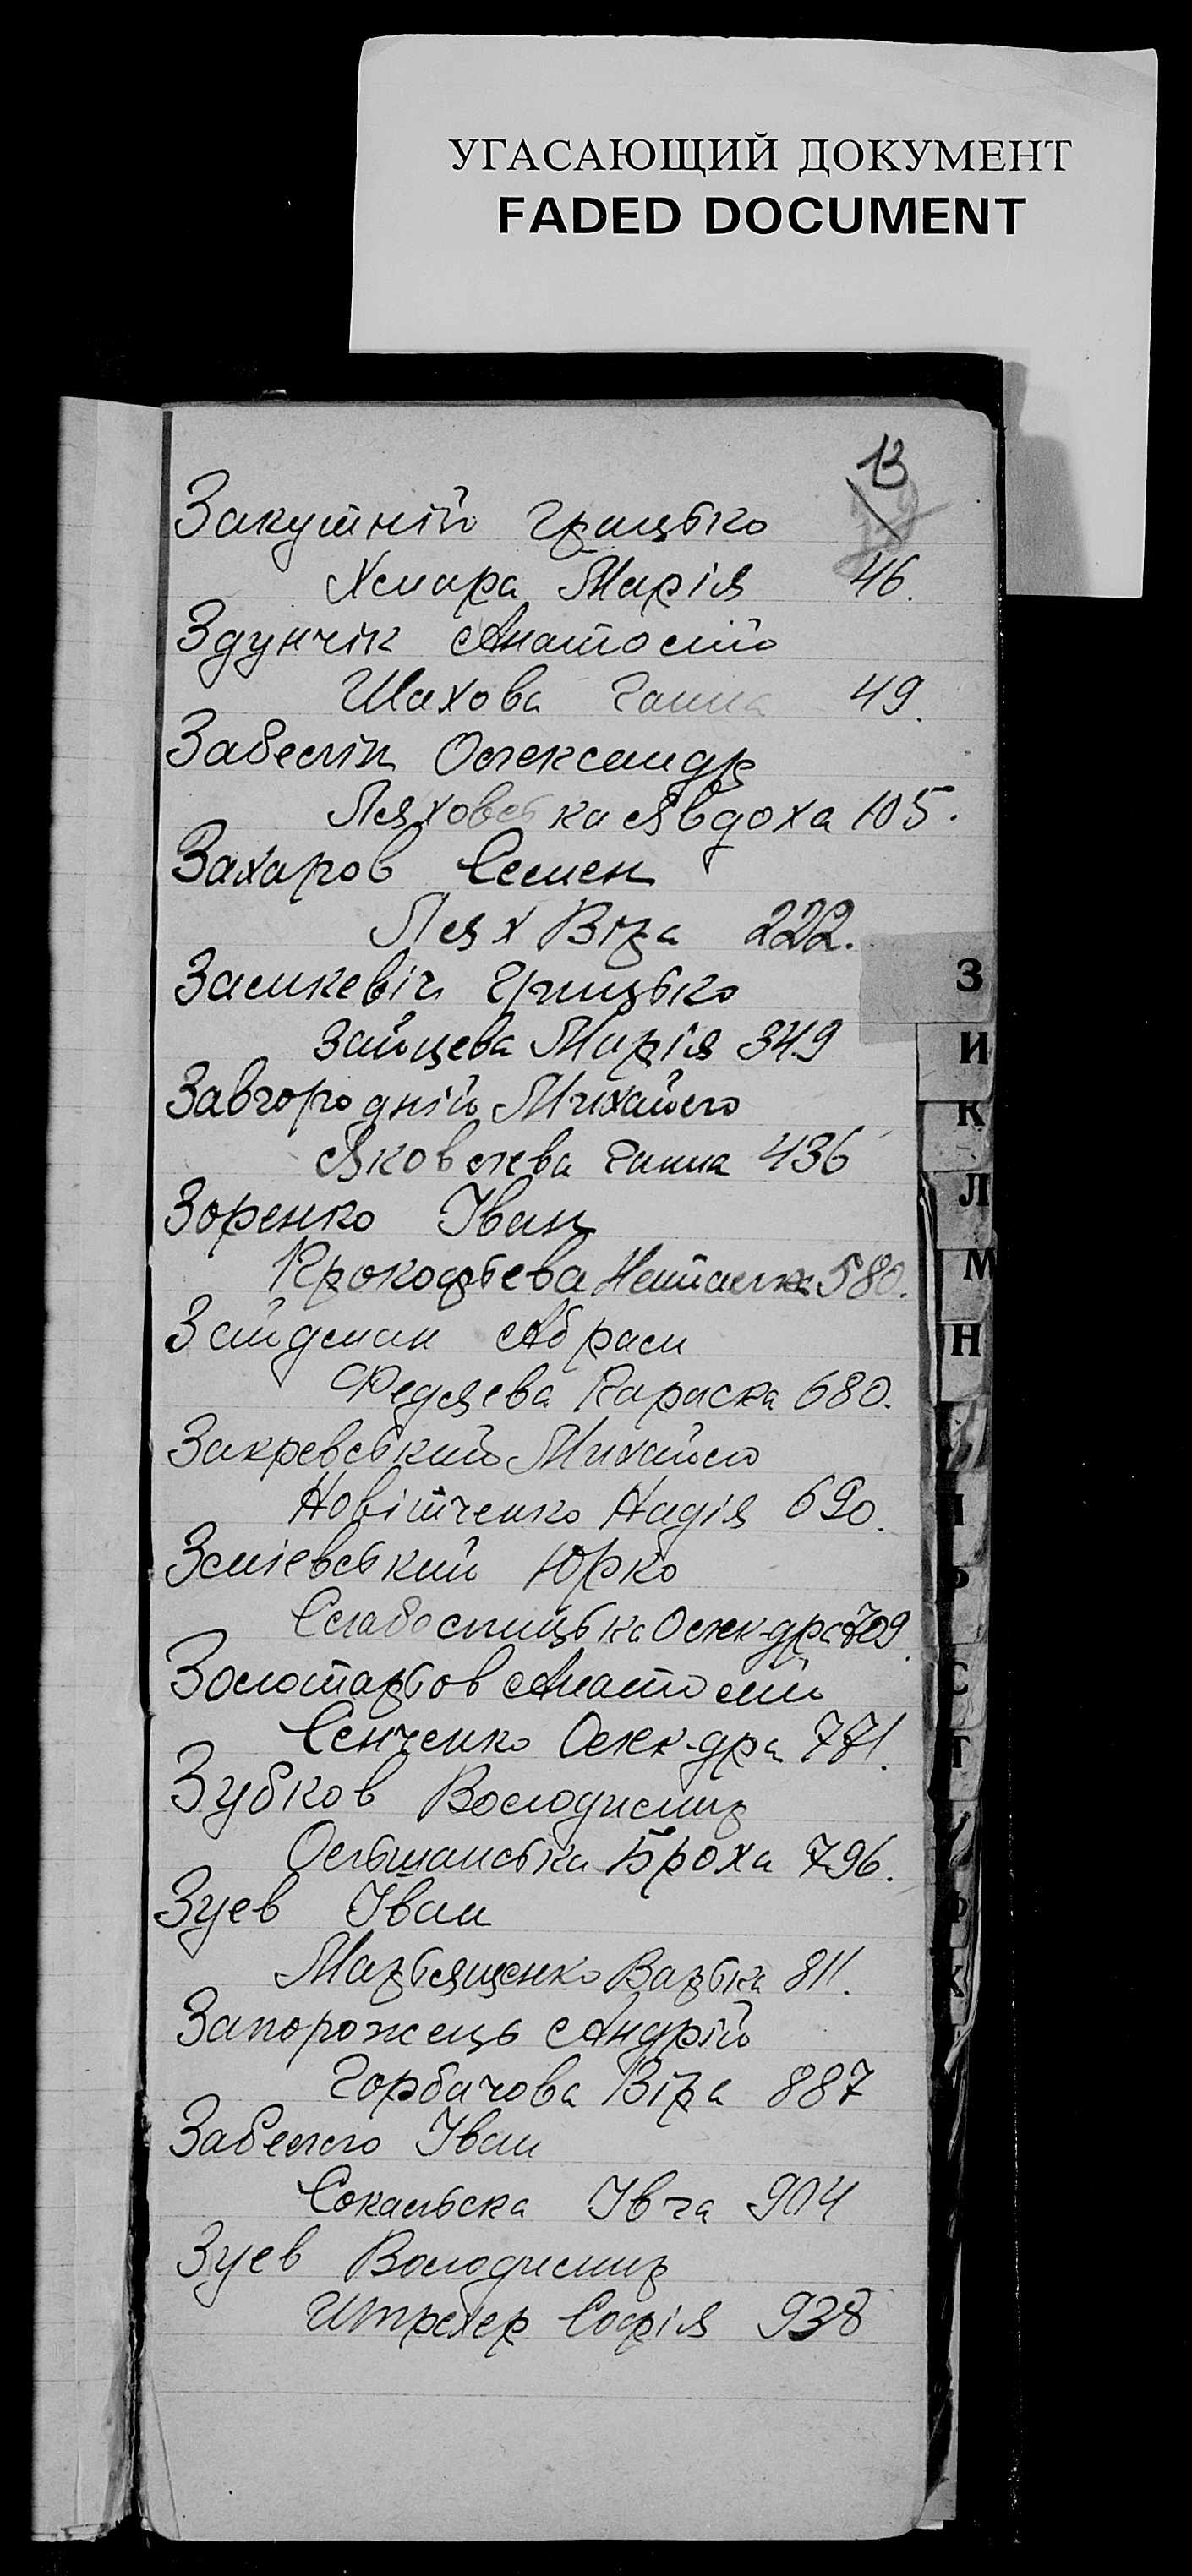 УГАСАЮЩИЙ ДОКУМЕНТ
FADED DOCUMENT
13
Закутній Грицько
Хмара Марія 46.
Здунчік Анатолій
Шахова Ганна 49.
Забелін Олександр
Ляховська Явдоха 105.
Захаров Семен
Лях Віра 222.
Замкевіч Грицько
Зайцева Марія 349
Завгородній Михайло
Яковлева Ганна 436
Зоренко Іван
Прокофьева Наталя 580.
Зайдман Абрам
Федяева Параска 680.
Закревський Михайло
Новітченко Надія 690.
Зміевський Юрко
Слабоспицька Олек-дра 709.
Золотарьов Анатолій
Сенченко Олек-дра 771.
Зубков Володимир
Ольшанська Броха 796.
Зуев Іван
Марьященко Варька 811.
Запорожець Андрій
Горбачова Віра 887
Забелло Іван
Сокальска Івга 904
Зуев Володимир
Штрехер Софія 938
З
И
К
Л
М
Н
С
Т
Ф